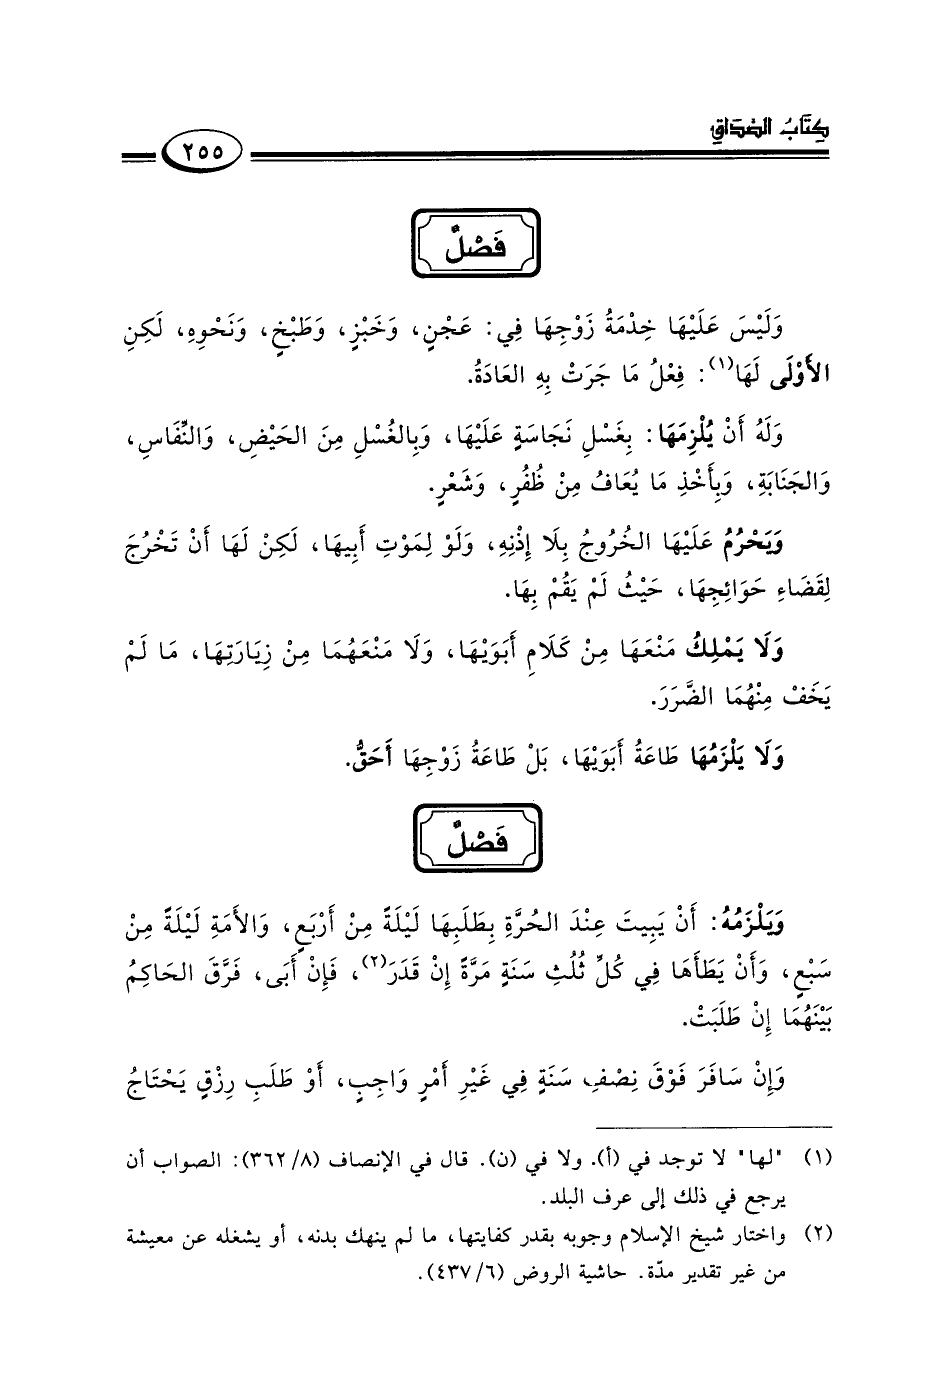 كِتَابُ الصَّدَاقِ
٢٥٥
فَصْلٌ
وَلَيْسَ عَلَيْهَا خِدْمَةُ زَوْجِهَا فِي: عَجْنٍ، وَخَبْزٍ، وَطَبْخٍ، وَنَحْوِهِ، لَكِنِ
الأَوْلَى لَهَا(١): فِعْلُ مَا جَرَتْ بِهِ العَادَةُ.
وَلَهُ أَنْ يُلْزِمَهَا: بِغَسْلِ نَجَاسَةٍ عَلَيْهَا، وَبِالغُسْلِ مِنَ الحَيْضِ، وَالنِّفَاسِ،
وَالجَنَابَةِ، وَبِأَخْذِ مَا يُعَافُ مِنْ ظُفُرٍ، وَشَعْرٍ.
وَيَحْرُمُ عَلَيْهَا الخُرُوجُ بِلَا إِذْنِهِ، وَلَوْ لِمَوْتِ أَبِيهَا، لَكِنْ لَهَا أَنْ تَخْرُجَ
لِقَضَاءِ حَوَائِجِهَا، حَيْثُ لَمْ يَقُمْ بِهَا.
وَلَا يَمْلِكُ مَنْعَهَا مِنْ كَلَامِ أَبَوَيْهَا، وَلَا مَنْعَهُمَا مِنْ زِيَارَتِهَا، مَا لَمْ
يَخَفْ مِنْهُمَا الضَّرَرَ.
وَلَا يَلْزَمُهَا طَاعَةُ أَبَوَيْهَا، بَلْ طَاعَةُ زَوْجِهَا أَحَقُّ.
فَصْلٌ
وَيَلْزَمُهُ: أَنْ يَبِيتَ عِنْدَ الحُرَّةِ بِطَلَبِهَا لَيْلَةً مِنْ أَرْبَعٍ، وَالأَمَةِ لَيْلَةً مِنْ
سَبْعٍ، وَأَنْ يَطَأَهَا فِي كُلِّ ثُلُثِ سَنَةٍ مَرَّةً إِنْ قَدَرَ(٢)، فَإِنْ أَبَى، فَرَّقَ الحَاكِمُ
بَيْنَهُمَا إِنْ طَلَبَتْ.
وَإِنْ سَافَرَ فَوْقَ نِصْفِ سَنَةٍ فِي غَيْرِ أَمْرٍ وَاجِبٍ، أَوْ طَلَبِ رِزْقٍ يَحْتَاجُ
(١) "لها" لا توجد في (أ). ولا في (ن). قال في الإنصاف (٣٦٢/٨): الصواب أن
يرجع في ذلك إلى عرف البلد.
(٢) واختار شيخ الإسلام وجوبه بقدر كفايتها، ما لم ينهك بدنه، أو يشغله عن معيشة
من غير تقدير مدّة. حاشية الروض (٤٣٧/٦).